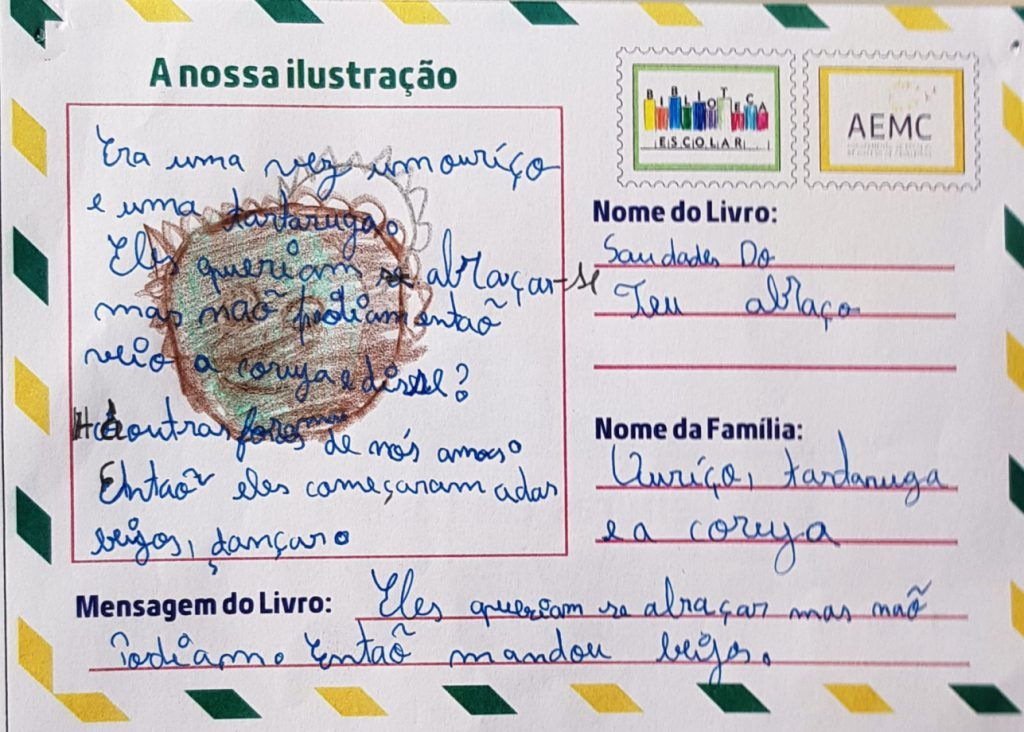 A nossa ilustração
Era uma vez um ouriço
e uma tartaruga.
Eles queriam se abraçar-se
mas não podiam então
veio a coruja e disse?
Há outras formas de nós amas.
Então eles começaram a das
beijos, dançar.
BIBLIOTECA
ESCOLAR
AEMC
Nome do Livro:
Saudades Do
Teu abraço
Nome da Família:
Ouriço, tartaruga
e a coruja
Mensagem do Livro: Eles queriam se abraçar mas não
Podiam. Então mandou beijos.